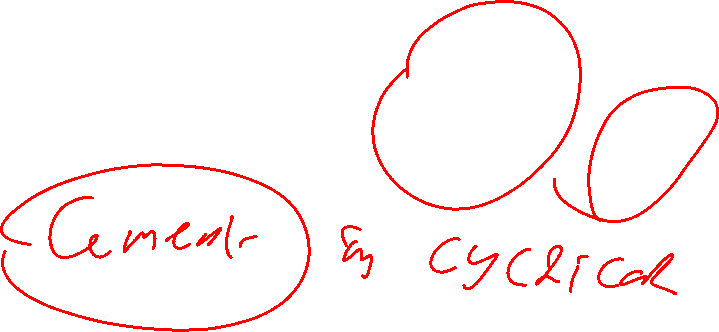 Cement is cyclical